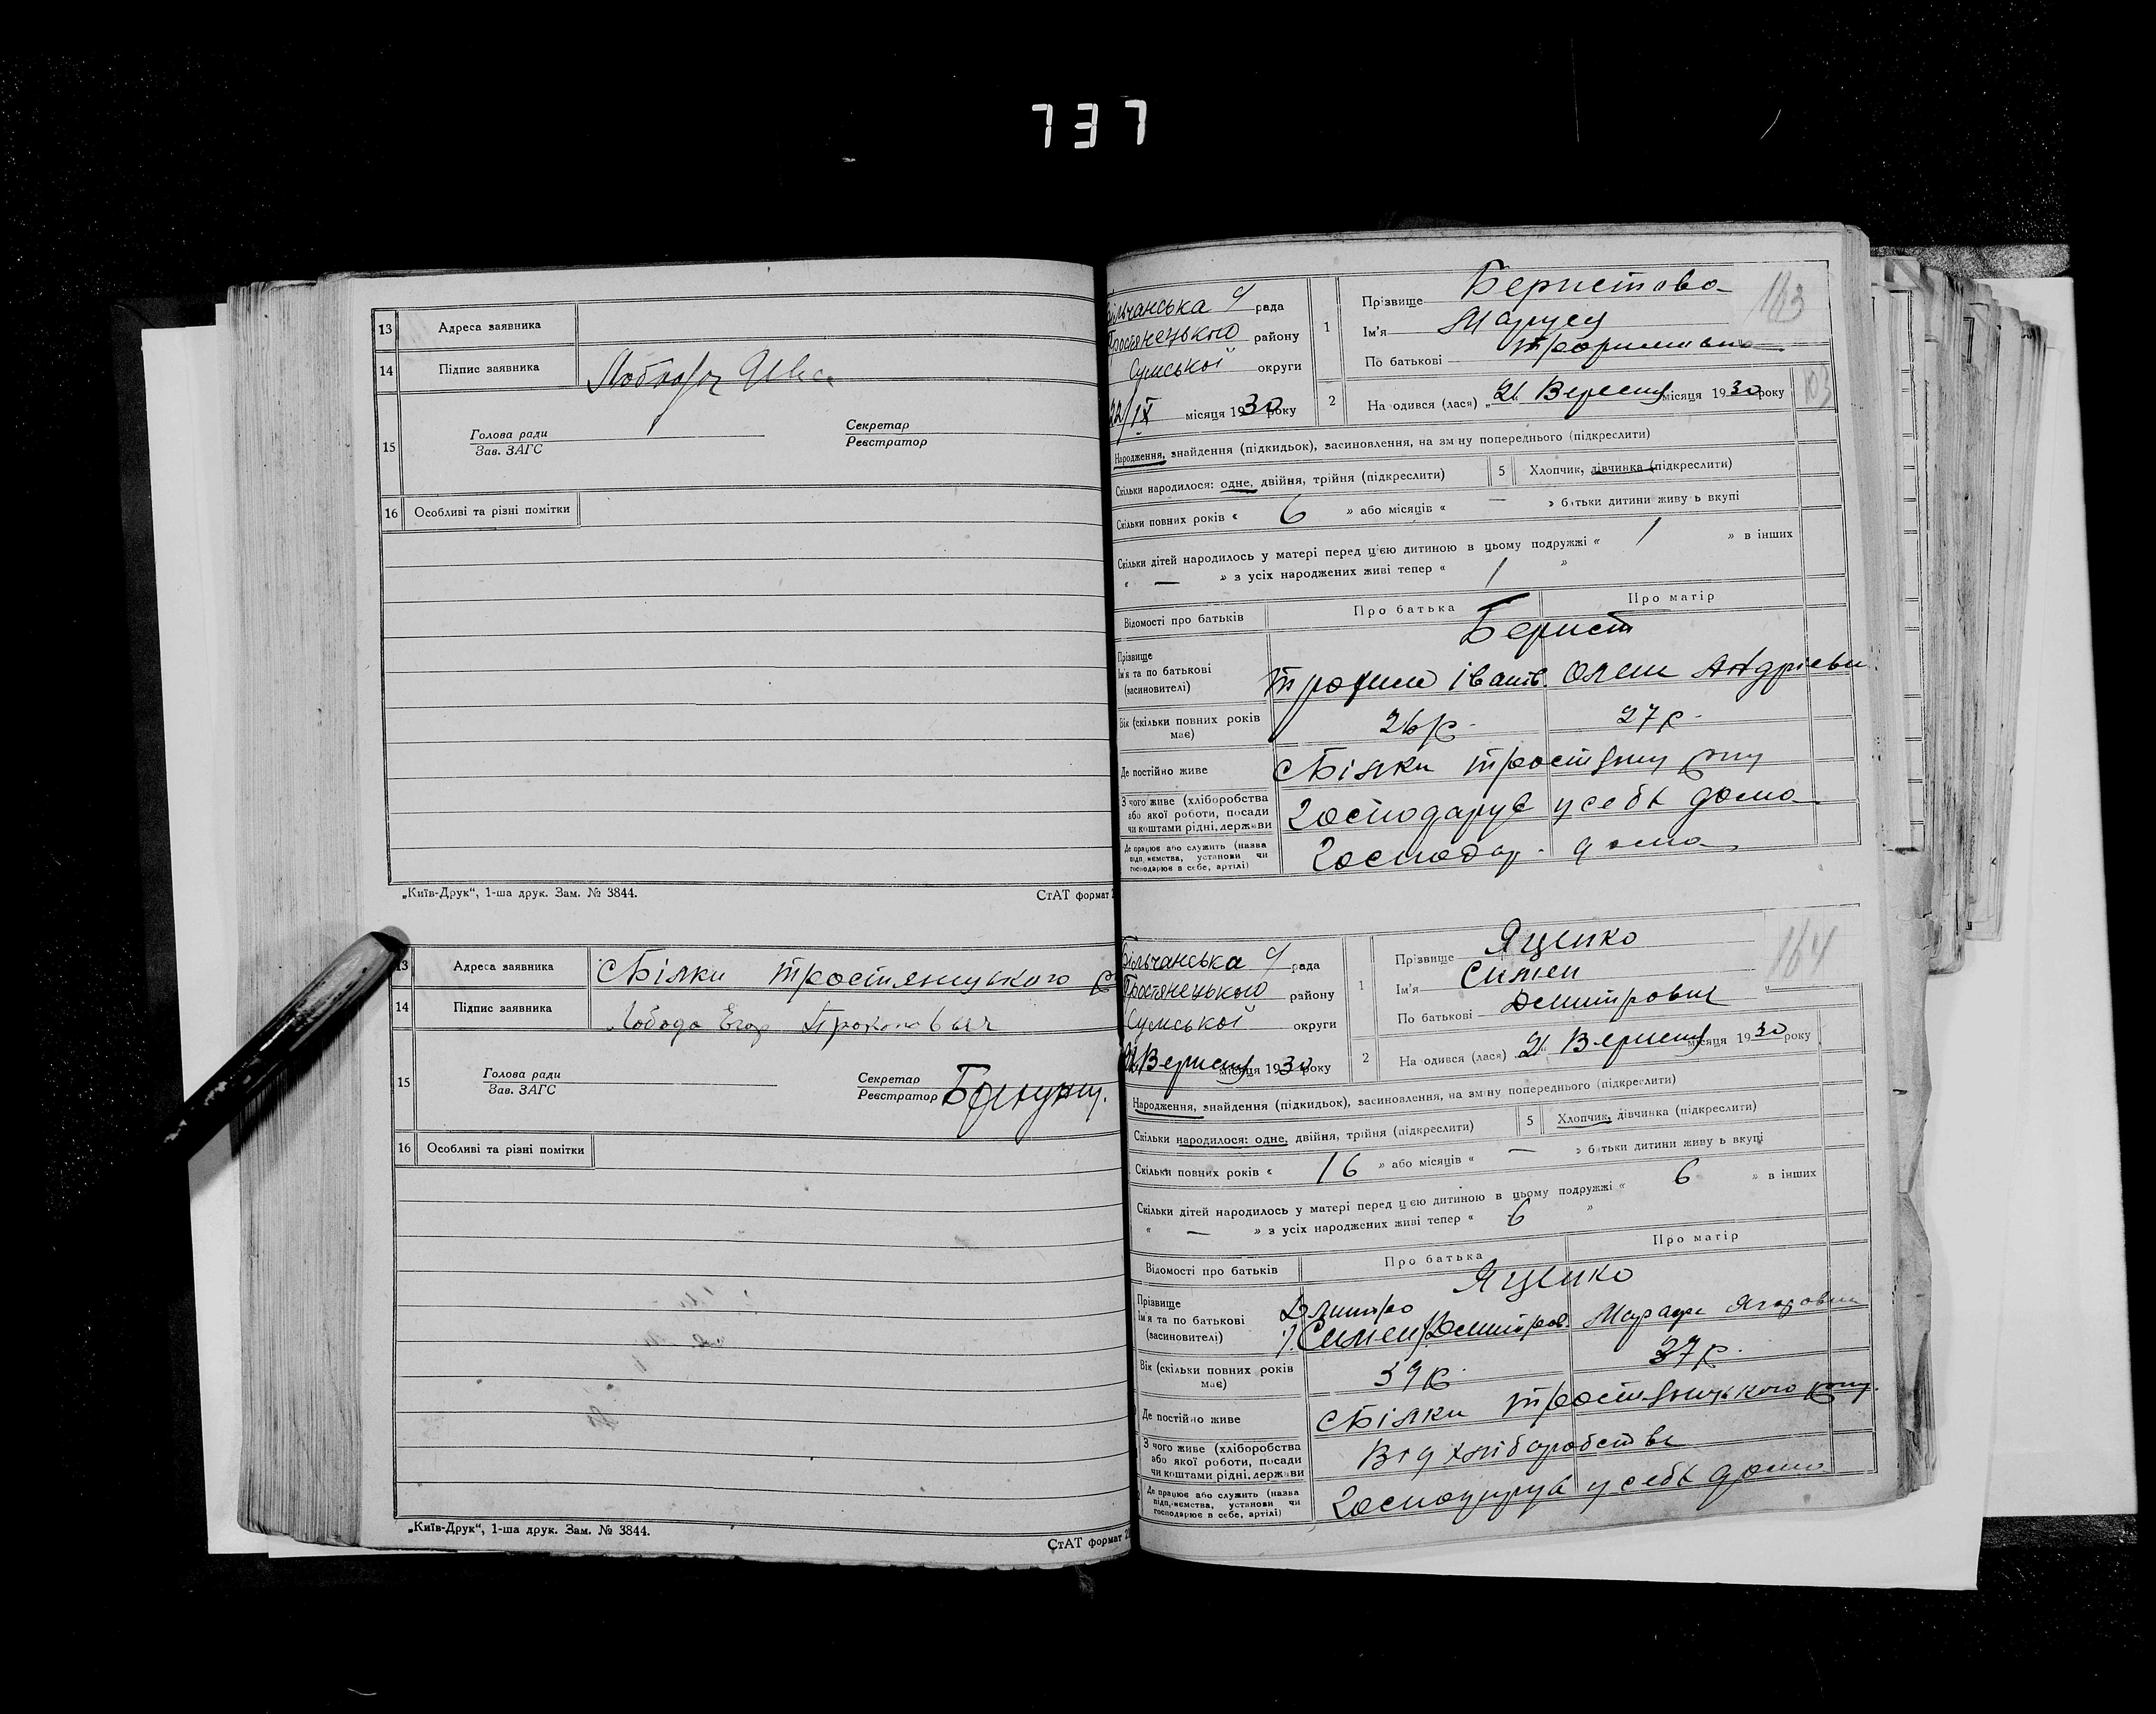 737
13 Адреса заявника
14 Підпис заявника
15 Голова ради Секретар
Зав. ЗАГС Реєстратор
16 Особливі та різні помітки
„Київ-Друк“, 1-ша друк. Зам. № 3844. СтАТ формат
13 Адреса заявника с Білки Тростянецького
14 Підпис заявника Лобода Егор
15 Голова ради Секретар
Зав. ЗАГС Реєстратор
16 Особливі та різні помітки
„Київ-Друк“, 1-ша друк. Зам. № 3844.
СтАТ формат
рада
Тростянецького району
Сумської округи
22/IX місяця 1930 року
1 Прізвище
Ім'я Маруся
По батькові
163
2 На одився (лася) „21 Вересня місяця 1930 року
103
Народження, знайдення (підкидьок), засиновлення, на зміну попереднього (підкреслити)
Скільки народилося: одне, двійня, трійня (підкреслити) 5 Хлопчик, дівчинка (підкреслити)
Скільки повних років « 6 » або місяців « — » батьки дитини живу ь вкупі
Скільки дітей народилось у матері перед цією дитиною в цьому подружжі « 1 » в інших
« — » з усіх народжених живі тепер « 1 »
Відомості про батьків Про батька Про матір
Берист
Прізвище
Ім'я та по батькові
(засиновителі) Трохим Іванов.
Вік (скільки повних років має) 26 р. 27 р.
Де постійно живе с Білки
З чого живе (хліборобства або якої роботи, посади чи коштами рідні, держави Господарує у себе дома
Де працює або служить (назва підприємства, установи чи господарює в себе, артілі) Господар. дома
Більчанська рада
Тростянецького району
Сумської округи
Вересня місяця 1930 року
1 Прізвище Яценко
Ім'я Симен
По батькові Дмитрович
164
2 На одився (лася) „21 Вересня місяця 1930 року
Народження, знайдення (підкидьок), засиновлення, на зміну попереднього (підкреслити)
Скільки народилося: одне, двійня, трійня (підкреслити) 5 Хлопчик, дівчинка (підкреслити)
Скільки повних років « 16 » або місяців « — » батьки дитини живу ь вкупі
Скільки дітей народилось у матері перед цією дитиною в цьому подружжі « 6 » в інших
« — » з усіх народжених живі тепер « 6 »
Відомості про батьків Про батька Про матір
Яценко
Прізвище
Ім'я та по батькові
(засиновителі) Дмитро
Симен Дмитров.
Вік (скільки повних років має) 39 р. 37 р.
Де постійно живе с Білки Тростянецького
З чого живе (хліборобства або якої роботи, посади чи коштами рідні, держави Від хліборобства
Де працює або служить (назва підприємства, установи чи господарює в себе, артілі) Господарує у себе дома